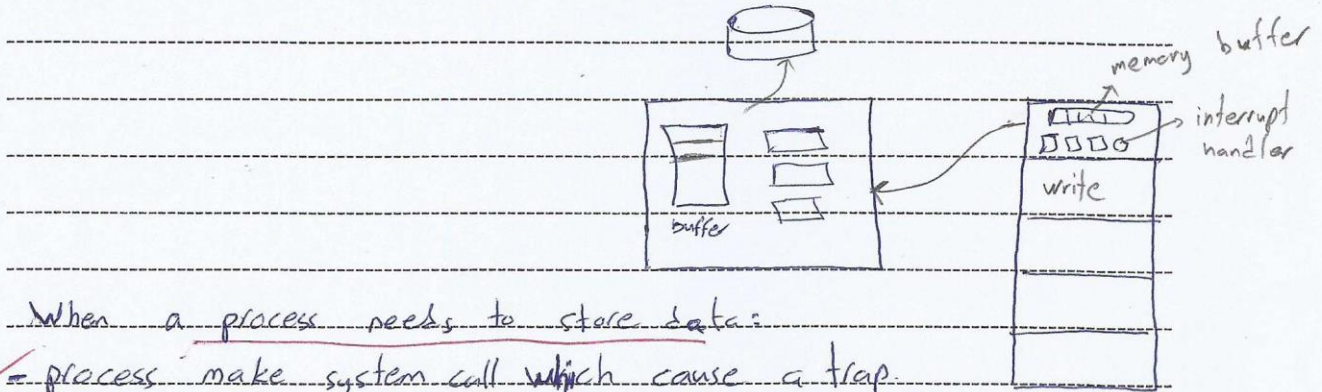 memory buffer
interrupt
handler
write
buffer
When a process needs to store data:
- process make system call which cause a trap.